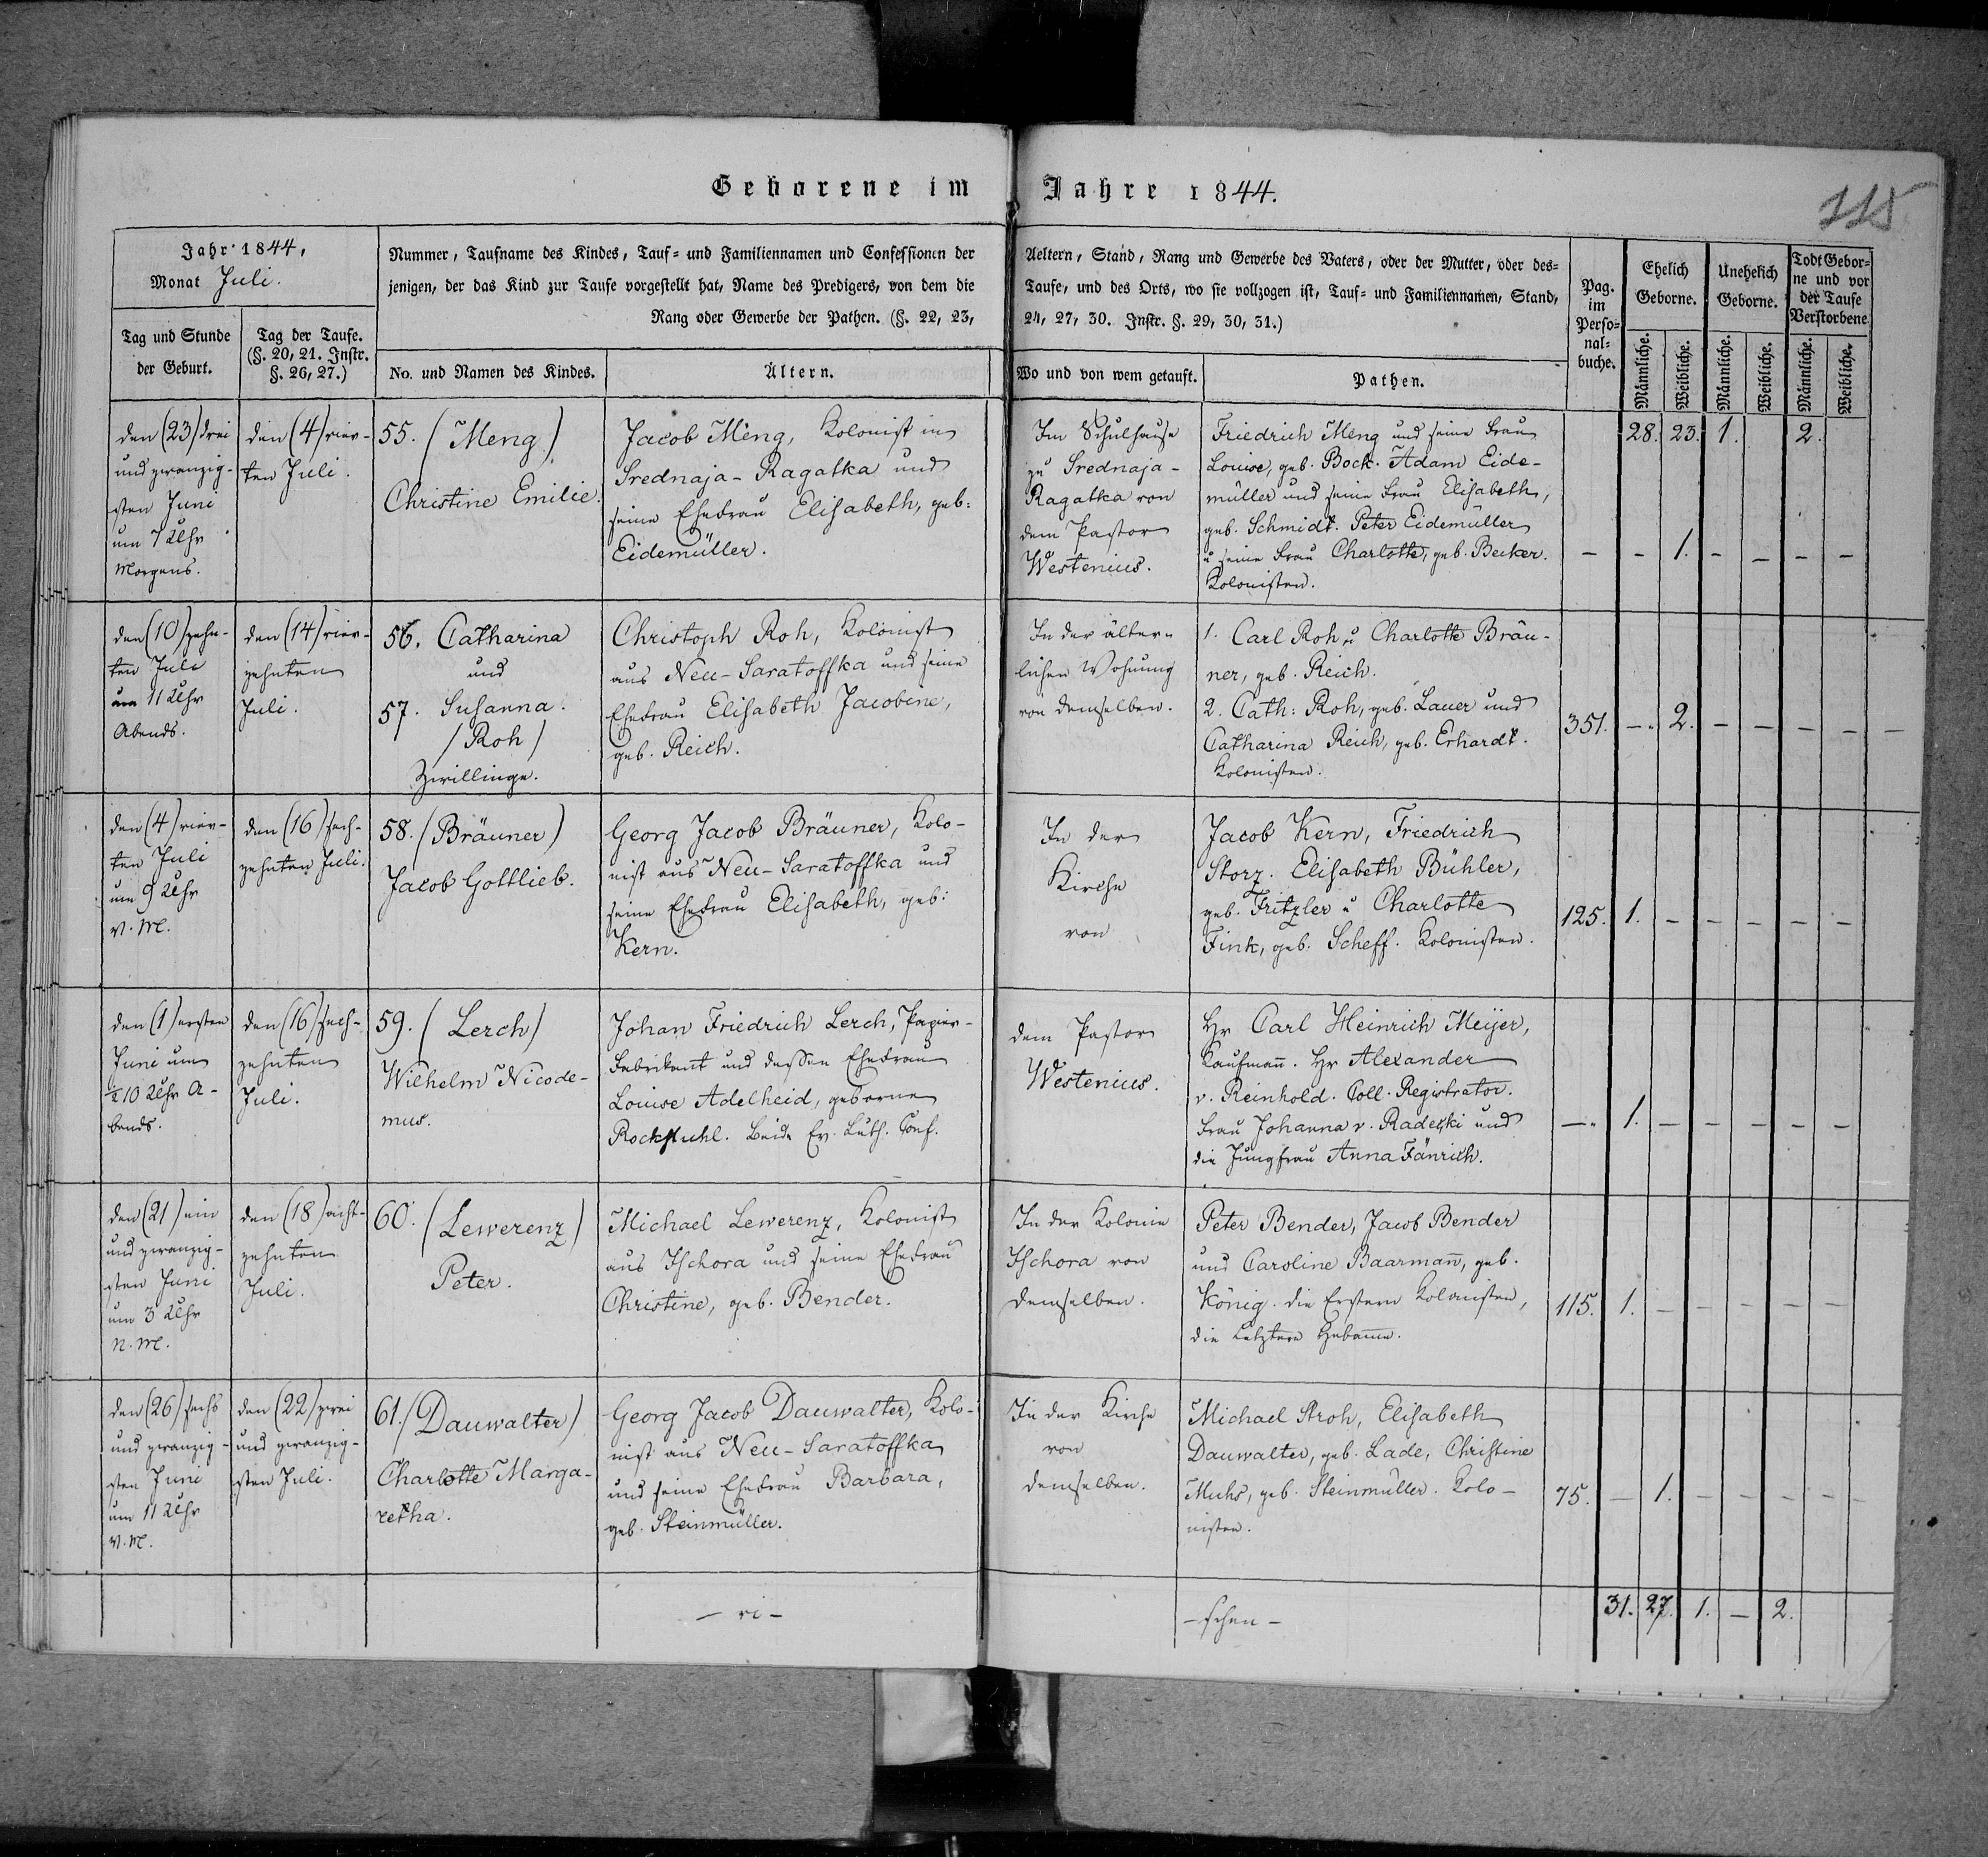 Geborene im Jahre 1844.
115
Jahr 1844,
Monat Juli.
Tag und Stunde
der Geburt.
Tag der Taufe.
(§. 20, 21. Instr.
§. 26, 27.)
Nummer, Taufname des Kindes, Tauf- und Familiennamen und Confessionen der
jenigen, der das Kind zur Taufe vorgestellt hat, Name des Predigers, von dem die
Rang oder Gewerbe der Pathen. (§. 22, 23,
No. und Namen des Kindes.
Ältern.
Aeltern, Stand, Rang und Gewerbe des Vaters, oder der Mutter, oder des-
Taufe, und des Orts, wo sie vollzogen ist, Tauf- und Familiennamen, Stand,
24, 27, 30. Instr. §. 29, 30, 31.)
Wo und von wem getauft.
Pathen.
Pag.
im
Perso-
nal-
buche.
Ehelich
Geborne.
Unehelich
Geborne.
Todt Gebor-
ne und vor
der Taufe
Verstorbene
Männliche.
Weibliche.
Männliche.
Weibliche.
Männliche.
Weibliche.
den (23) drei
und zwanzig-
sten Juni
um 7 Uhr
Morgens.
den (4) vier-
ten Juli.
55. (Meng)
Christine Emilie.
Jacob Meng, Kolonist in
Srednaja-Ragatka und
seine Ehefrau Elisabeth, geb:
Eidemüller.
Im Schulhause
zu Srednaja-
Ragatka von
dem Pastor
Westenius.
Friedrich Meng und seine Frau
Louise, geb. Bock. Adam Eide-
müller und seine Frau Elisabeth,
geb. Schmidt. Peter Eidemüller
u seine Frau Charlotte, geb. Becker.
Kolonisten.
28. 23. 1. 2.
- - 1. - - - -
den (10) zehn-
ten Juli
um 11 Uhr
Abends.
den (14) vier-
zehnten
Juli.
56. Catharina
und
57. Susanna.
(Roh)
Zwillinge.
Christoph Roh, Kolonist
aus Neu-Saratoffka und seine
Ehefrau Elisabeth Jacobine,
geb. Reich.
In der älter-
lichen Wohnung
von demselben.
1. Carl Roh u Charlotte Bräu-
ner, geb. Reich.
2. Cath: Roh, geb. Lauer und
Catharina Reich, geb. Erhardt.
Kolonisten.
351. - 2. - - - -
den (4) vier-
ten Juli
um 9 Uhr
V. M.
den (16) sech-
zehnten Juli.
58. (Bräuner)
Jacob Gottlieb.
Georg Jacob Bräuner, Kolo-
nist aus Neu-Saratoffka und
seine Ehefrau Elisabeth, geb:
Kern.
In der
Kirche
von
Jacob Kern, Friedrich
Storz. Elisabeth Bühler,
geb. Fritzler u Charlotte
Fink, geb. Scheff. Kolonisten.
125. 1. - - - - -
den (1) ersten
Juni um
½ 10 Uhr A-
bends.
den (16) sech-
zehnten
Juli.
59. (Lerch)
Wilhelm Nicode-
mus.
Johan Friedrich Lerch, Papier-
Fabrikant und dessen Ehefrau
Louise Adelheid, geborne
Rockstuhl. Beide Ev. Luth. Conf.
dem Pastor
Westenius.
Hr Carl Heinrich Meijer,
Kaufmañ. Hr Alexander
v. Reinhold. Coll. Registrator.
Frau Johanna v. Radetzki und
die Jungfrau Anna Fänrich.
- 1. - - - - -
den (21) ein
und zwanzig-
sten Juni
um 3 Uhr
N. M.
den (18) acht-
zehnten
Juli.
60. (Lewerenz)
Peter.
Michael Lewerenz, Kolonist
aus Ischora und seine Ehefrau
Christine, geb. Bender.
In der Kolonie
Ischora von
demselben.
Peter Bender, Jacob Bender
und Caroline Baarmañ, geb.
König. die Erstern Kolonisten,
die Letztere Hebam̄e.
115. 1. - - - - -
den (26) sechs
und zwanzig-
sten Juni
um 11 Uhr
V. M.
den (22) zwei
und zwanzig-
sten Juli.
61. (Dauwalter)
Charlotte Marga-
retha.
Georg Jacob Dauwalter, Kolo-
nist aus Neu-Saratoffka
und seine Ehefrau Barbara,
geb. Steinmüller.
In der Kirche
von
demselben.
Michael Stroh, Elisabeth
Dauwalter, geb. Lade, Christine
Muhs, geb. Steinmüller. Kolo-
nisten.
75. - 1. - - - -
- vi -
- schen -
31. 27. 1. - 2.